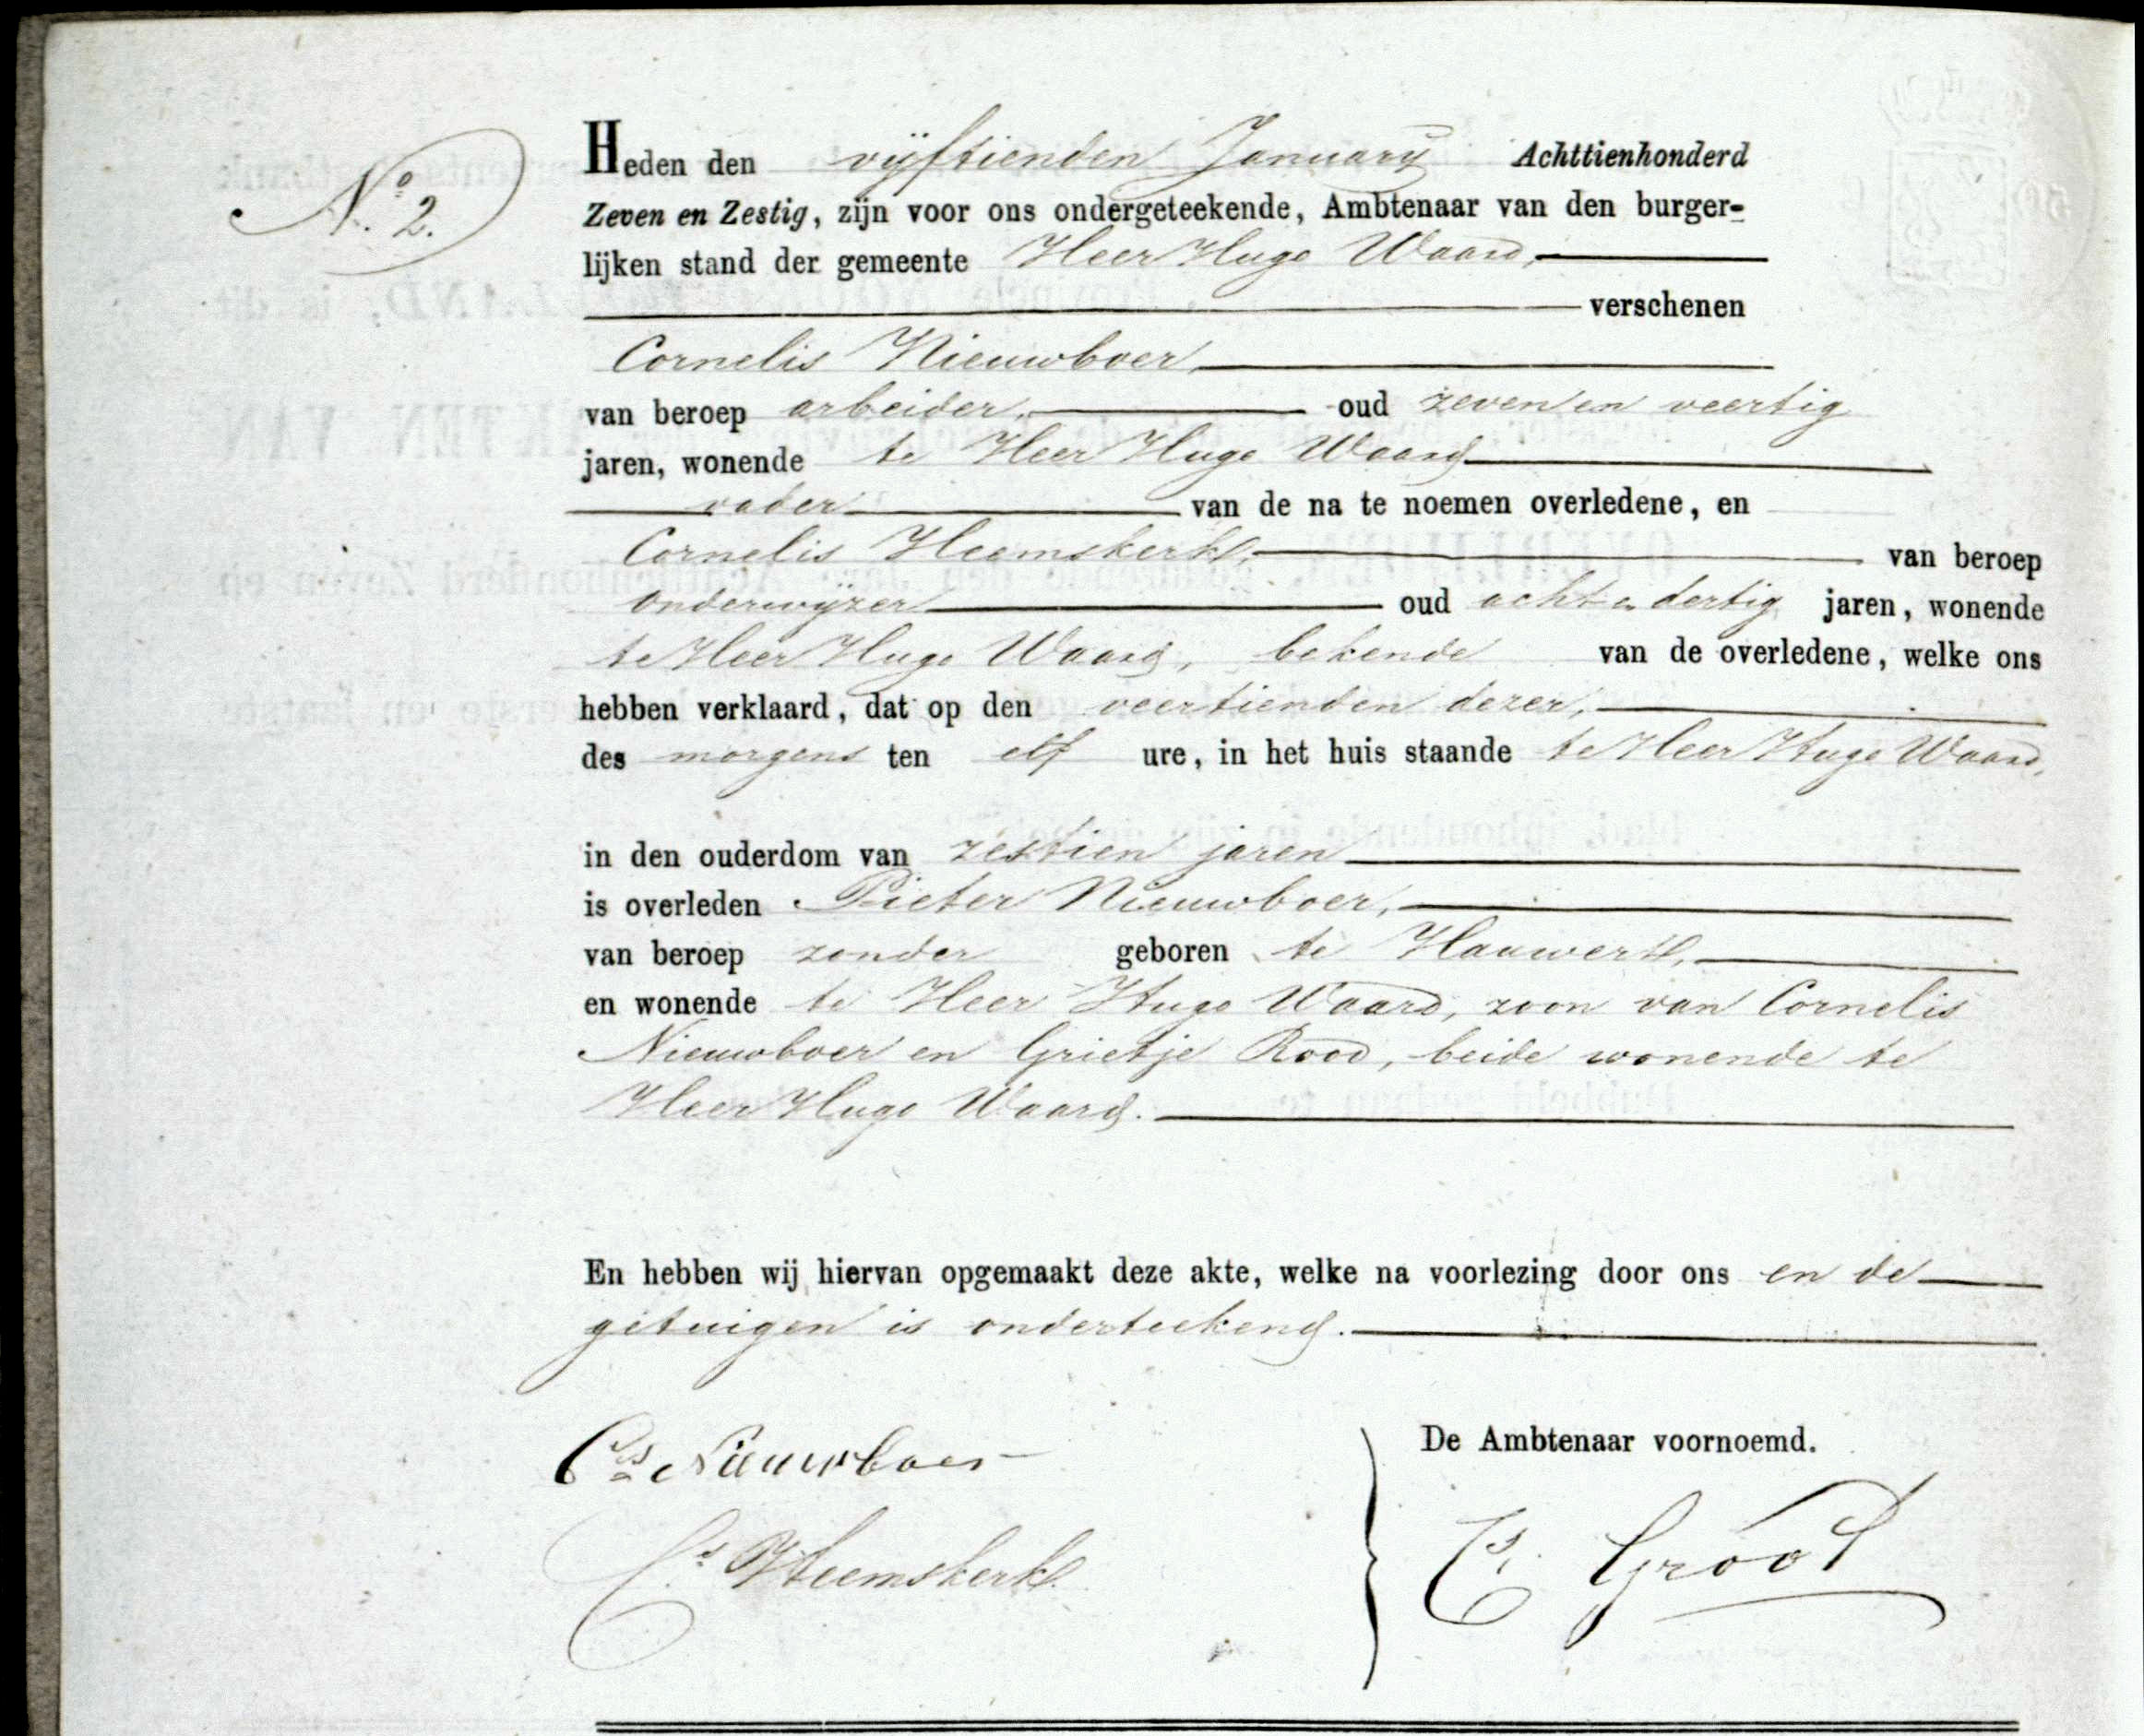 No. 2.
Heden den vijftienden January Achttienhonderd
Zeven en Zestig, zijn voor ons ondergeteekende, Ambtenaar van den burger-
lijken stand der gemeente Heer Hugo Waard,
verschenen
Cornelis Nieuwboer,
van beroep arbeider, oud zeven en veertig
jaren, wonende te Heer Hugo Waard
vader van de na te noemen overledene, en
Cornelis Heemskerk, van beroep
onderwijzer oud acht en dertig jaren, wonende
te Heer Hugo Waard, bekende van de overledene, welke ons
hebben verklaard, dat op den veertienden dezer,
des morgens ten elf ure, in het huis staande te Heer Hugo Waard,
in den ouderdom van zestien jaren
is overleden Pieter Nieuwboer,
van beroep zonder geboren te Hauwert,
en wonende te Heer Hugo Waard, zoon van Cornelis
Nieuwboer en Grietje Rood, beide wonende te
Heer Hugo Waard.
En hebben wij hiervan opgemaakt deze akte, welke na voorlezing door ons en de
getuigen is onderteekend.
Cs Nieuwboer
De Ambtenaar voornoemd.
Cs Heemskerk
Groot